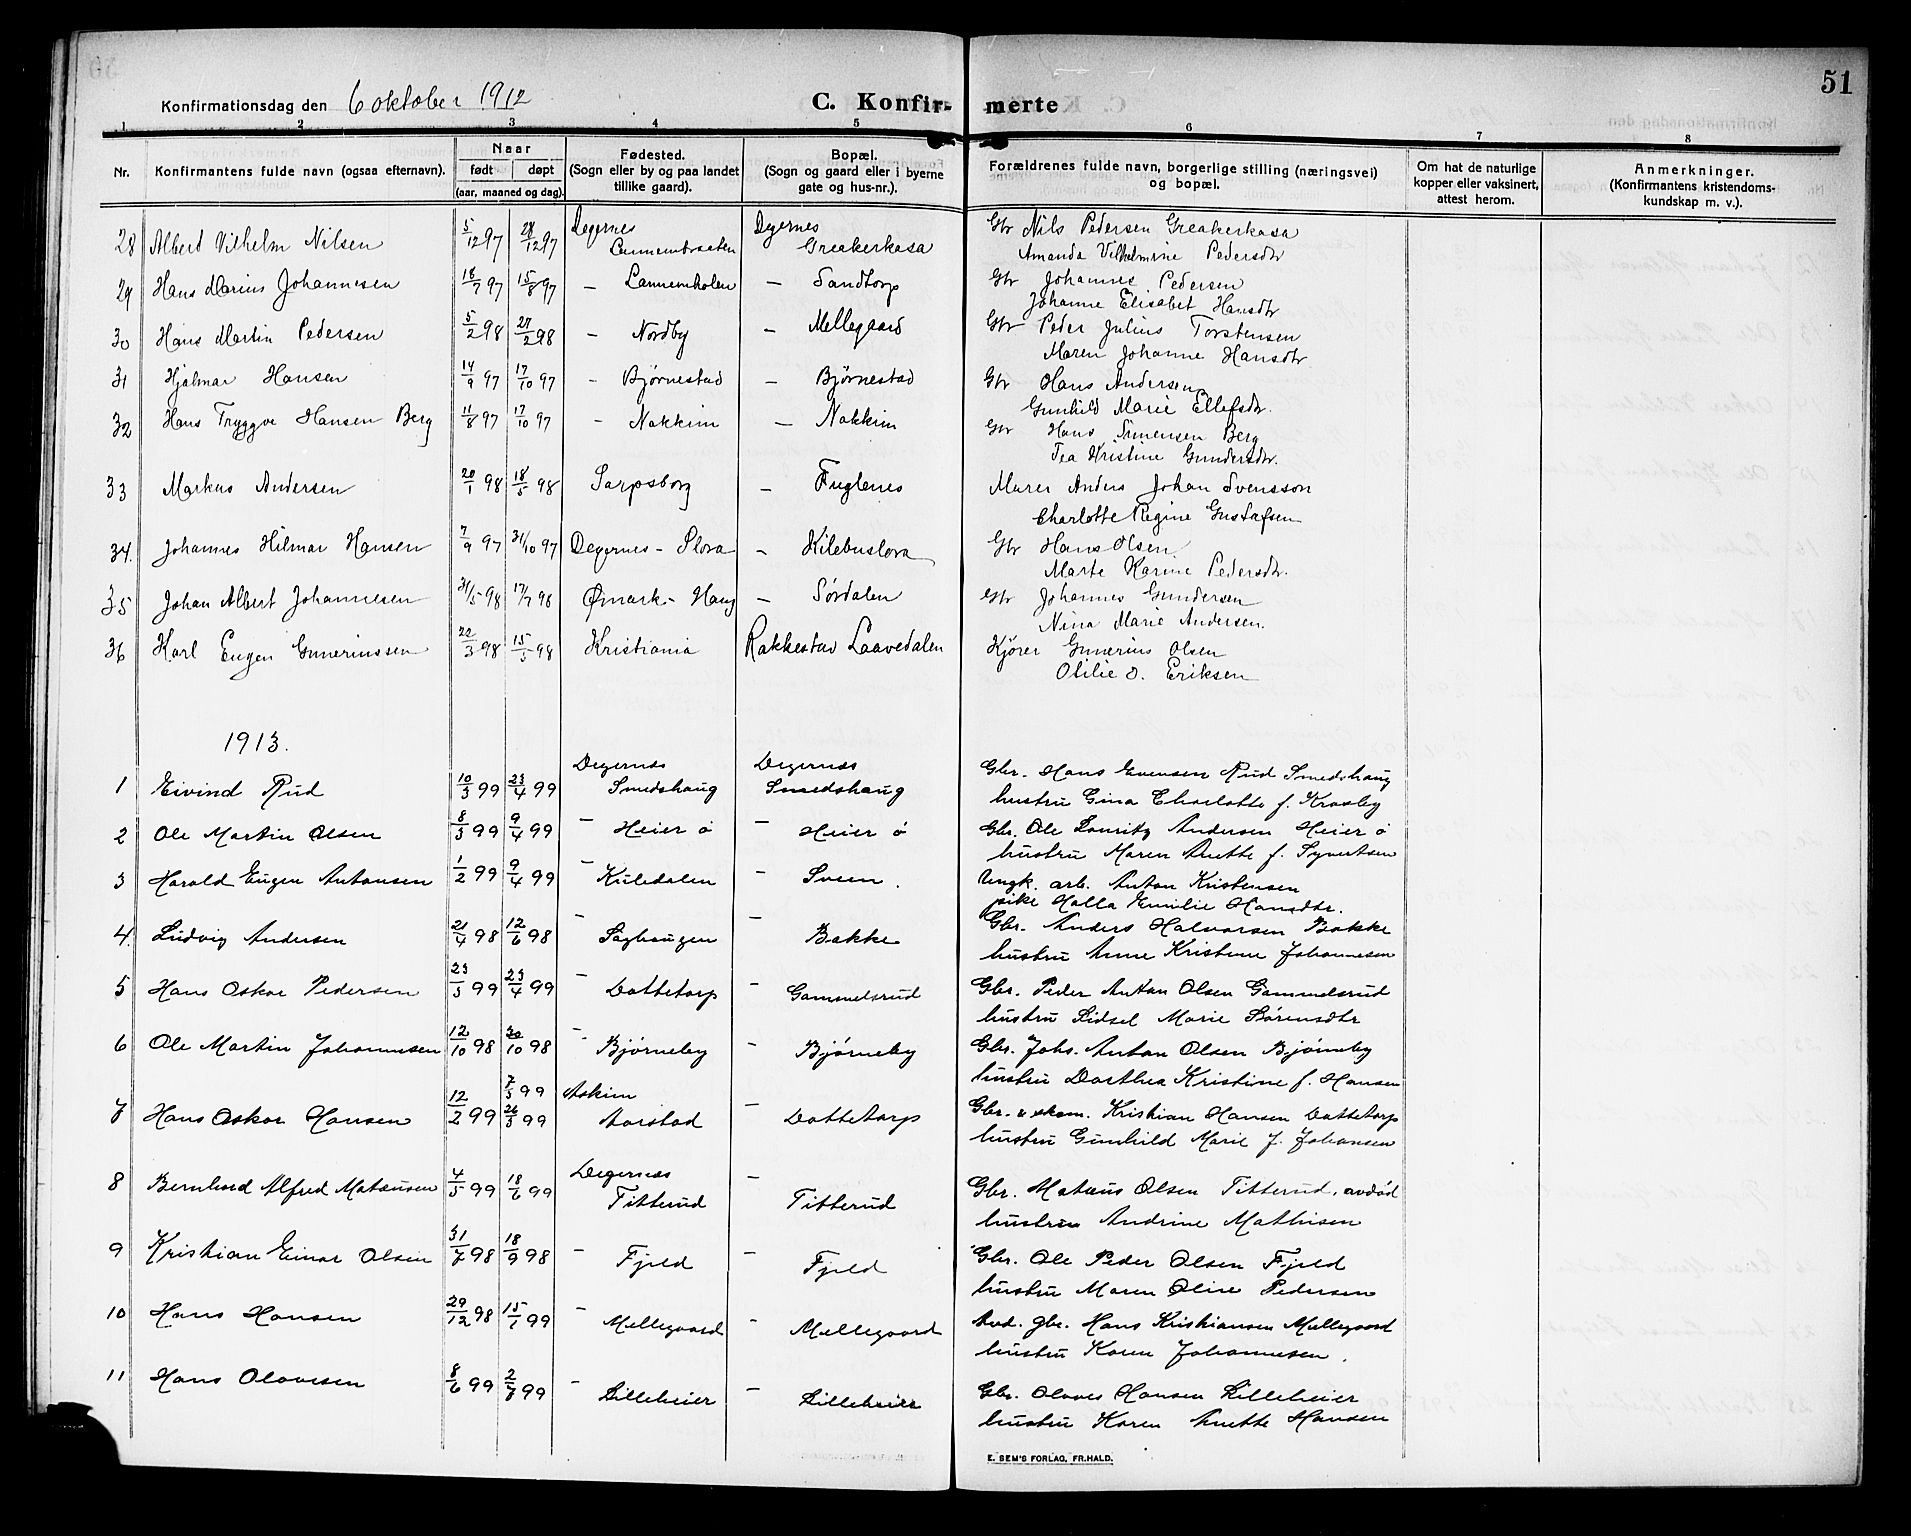 51
Konfirmationsdag den 6 oktober 1912
C. Konfir- merte
1 2 3 4 5 6 7 8
Nr. Konfirmantens fulde navn (ogsaa efternavn).
Naar
født døpt
(aar, maaned og dag).
Fødested.
(Sogn eller by og paa landet
tillike gaard).
Bopæl.
(Sogn og gaard eller i byerne
gate og hus-nr.).
Forældrenes fulde navn, borgerlige stilling (næringsvei)
og bopæl.
Om hat de naturlige
kopper eller vaksinert,
attest herom.
Anmerkninger.
(Konfirmantens kristendoms-
kundskap m. v.).
28 Albert Vilhelm Nilsen 5/12 97 28/12 97 Degernes Degernes Greakerkasa Gbr Nils Pedersen Greakerkasa
Amanda Vilhelmine Pedersdtr
29 Hans Marius Johannesen 18/7 97 15/8 97 – Lannemholen – Sandtorp Gbr Johannes Pedersen
Johanne Elisabet Hansdtr
30 Hans Martin Pedersen 5/2 98 27/2 98 – Nordby – Mellegaard Gbr Peder Julius Torstensen
Maren Johanne Hansdtr
31 Hjalmar Hansen 14/9 97 17/10 97 – Bjørnestad – Bjørnestad Gbr Hans Andersen
Gunhild Marie Ellefsdtr.
32 Hans Tryggve Hansen Berg 11/8 97 17/10 97 – Nakkim – Nakkim Gbr Hans Simensen Berg
Tea Kristine Gundersdtr.
33 Markus Andersen 20/1 98 18/5 98 Sarpsborg – Fuglenes Murer Anders Johan Svensson
Charlotte Regine Gustafsen
34. Johannes Hilmar Hansen 7/9 97 31/10 97 Degernes - Slora – Kilebuslora Gbr Hans Olsen
Marte Karine Pedersdtr.
35 Johan Albert Johannesen 31/5 98 17/7 98 Ømark - Haug – Sørdalen Gbr Johannes Gundersen
Nina Marie Andersen.
36 Karl Eugen Guneriussen 22/3 98 15/5 98 Kristiania Rakkestad Laavedalen Kjører Gunerius Olsen
Otilie O. Eriksen
1913.
1 Eivind Rud 10/3 99 23/4 99 Degernes Smedshaug Degernes Smedshaug Gbr. Hans Evensen Rud Smedshaug
hustru Gina Charlotte f. Kroxby
2 Ole Martin Olsen 8/3 99 9/4 99 – Heier ø – Heier ø Gbr. Ole Louritz Andersen Heier ø
hustru Maren Anette f. Syvertsen
3 Harald Eugen Antonsen 1/2 99 9/4 99 – Kuledalen – Sveen. Ungk. arb. Anton Kristensen
pike Halla Emilie Hansdtr.
4. Ludvig Andersen 21/4 98 12/6 98 – Saghaugen – Bakke Gbr. Anders Halvorsen Bakke
hustru Anne Kristine Johannesen
5 Hans Oskar Pedersen 23/3 99 23/4 99 – Dottetorp – Gammelsrud Gbr. Peder Anton Olsen Gammelsrud
hustru Sidsel Marie Sørensdtr
6 Ole Martin Johannesen 12/10 98 30/10 98 – Bjørneby – Bjørneby Gbr. Johs. Anton Olsen Bjørneby
hustru Dorthea Kristine f. Hansen
7 Hans Oskar Hansen 12/2 99 7/5 99 26/3 99 Askim Aarstad – Dottetorp Gbr. & skom. Kristian Hansen Dottetorp
hustru Gunhild Marie f. Johansen
8 Bernhard Alfred Matæusen 4/5 99 18/6 99 Degernes Titterud – Titterud Gbr. Matæus Olsen Titterud, avdød
hustru Andrine Mathisen
9 Kristian Einar Olsen 31/7 98 18/9 98 – Fjeld – Fjeld Gbr. Ole Peder Olsen Fjeld
hustru Maren Oline Pedersen
10 Hans Hansen 29/12 98 15/1 99 – Mellegaard – Mellegaard Avd. gbr. Hans Kristiansen Mellegaard
hustru Karen Johannesen.
11 Hans Olavesen 8/6 99 2/7 99 – Lilleheier – Lilleheier Gbr. Olaves Hansen Lilleheier
hustru Karen Anette Hansen
E. SEM'S FORLAG, FR.HALD.